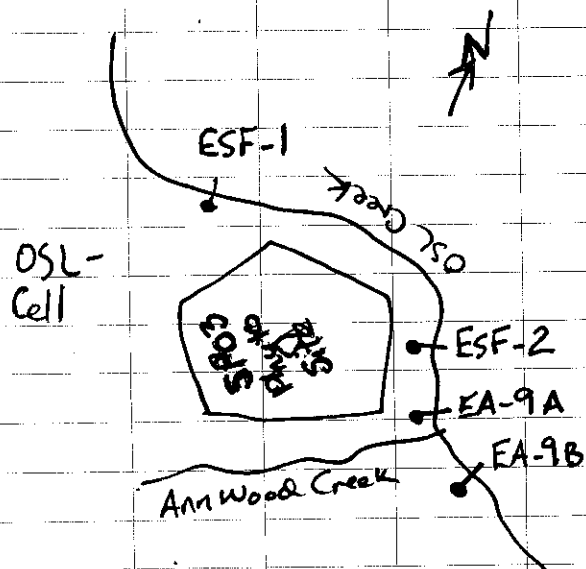 N
ESF-1
OSL Creek
OSL-
Cell
ESF-2
EA-9A
EA-9B
Ann Wood Creek